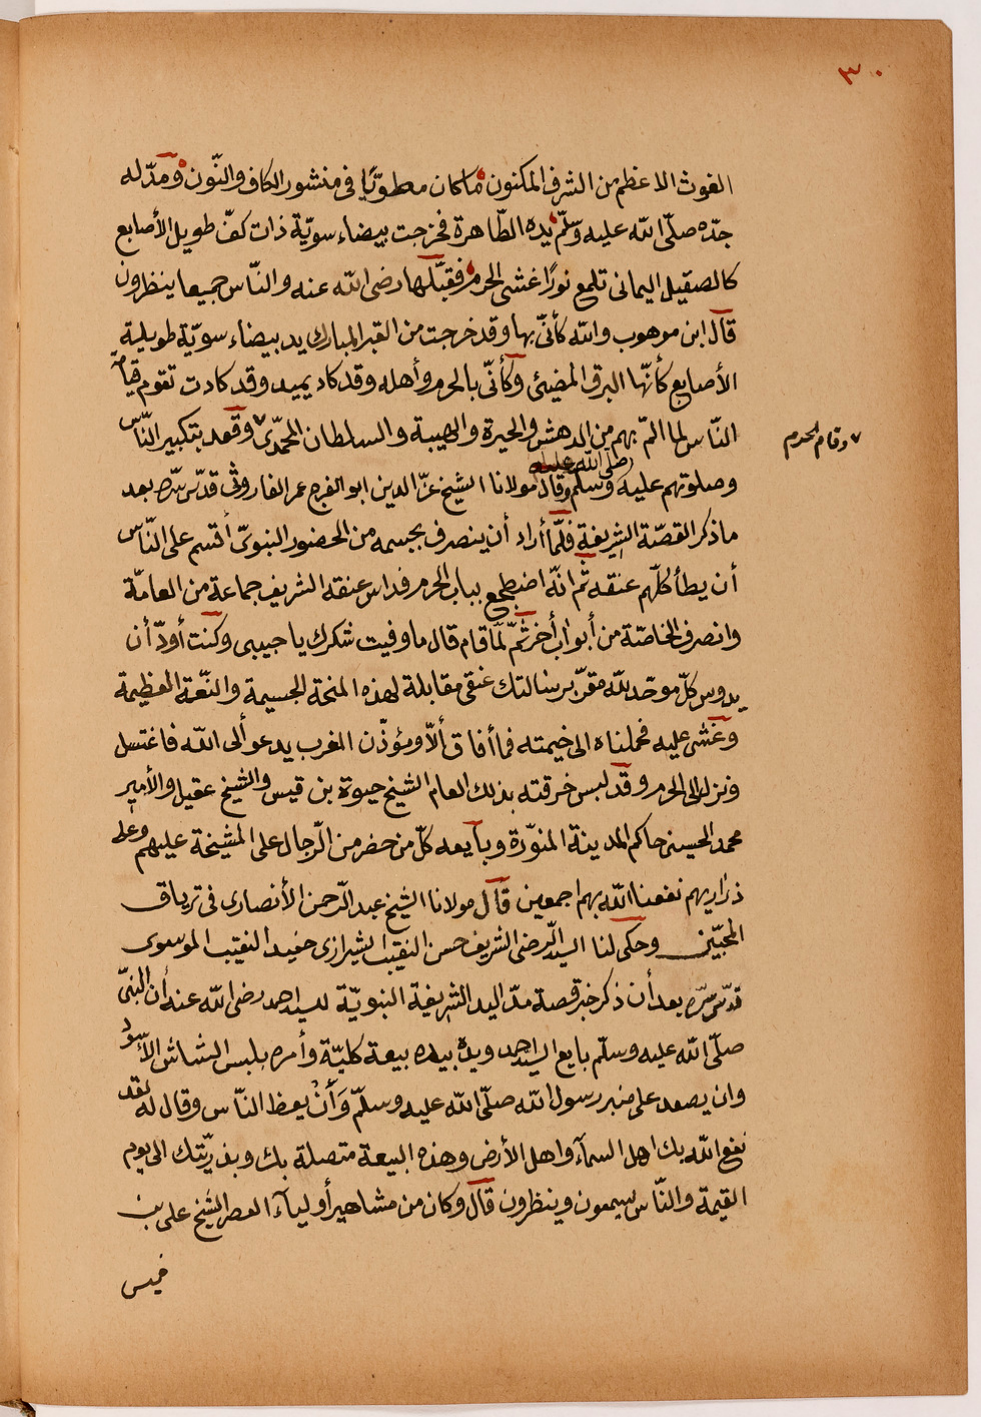 ٣٠
الغوث الاعظم من الشرف المكنون ما كان مطويًا فى منشور الكاف والنّون ومدّ له
جدّه صلّى الله عليه وسلّم يده الطّاهرة فخرجت بيضاء سويّة ذات كفّ طويل الأصابع
كالصقيل اليمانى تلمع نورًا غشى الحرم فقبّلها رضى الله عنه والنّاس جميعا ينظرون
قال ابن موهوب والله كأنّى بها وقد خرجت من القبر المبارك يد بيضاء سويّة طويلة
الأصابع كأنّها البرق المضيئ وكأنّى بالحرم وأهله وقد كاد يميد وقد كادت تقوم قيامة
النّاس لما المّ بهم من الدهش والحيرة والهيبة والسلطان المحمّدى ٧ وقعد بتكبير النّاس
٧ وقام الحرم
وصلوتهم عليه صلى الله عليه وسلم وقال مولانا الشيخ عزّ الدين ابو الفرج عمر الفاروثى قدّس سرّه بعد
ما ذكر القصّة الشريفة فلمّا أراد أن ينصرف بجسمه من الحضور النبوىّ أقسم على النّاس
أن يطأ كلّهم عنقه ثم انّه اضطجع بباب الحرم فداس عنقه الشريف جماعة من العامّة
وانصرف الخاصّة من أبواب أخر ثمّ لمّا قام قال ما وفيت شكرك يا حبيبى وكنت أودّ أن
يدوس كلّ موحّد لله مقرّ برسالتك عنقى مقابلة لهذه المنحة الجسيمة والنّعمة العظيمة
وغشى عليه فحملناه الى خيمته فما أفاق ألّا ومؤذّن المغرب يدعو ألى الله فاغتسل
ونزل الى الحرم وقد لبس خرقته بذلك العام الشيخ حيوة بن قيس والشيخ عقيل والأمير
محمد الحسينى حاكم المدينة المنوّرة وبايعه كلّ من حضر من الرّجال على المشيخة عليهم وعلى
ذراريهم نفعنا الله بهم اجمعين قال مولانا الشيخ عبد الرّحمن الأنصارى فى ترياق
المحبّين وحكى لنا السيد الرّضى الشريف حسن النقيب الشيرازى حفيد النقيب الموسوى
قدّس سرّه بعد أن ذكر خبر قصة مدّ اليد الشريفة النبويّة للسيد احمد رضى الله عنه أن النبىّ
صلّى الله عليه وسلّم بايع السيد احمد ويده بيده بيعة كليّة وأمره بلبس الشاش الأسود
وان يصعد على منبر رسول الله صلّى الله عليه وسلّم وَأنْ يعظ النّاس وقال له لقد
نفع الله بك اهل السمآء واهل الأرض وهذه البيعة متصلة بك وبذريّتك الى يوم
القيمة والنّاس يسمعون وينظرون قال وكان من مشاهير أوليآء العصر الشيخ على بن
خميس